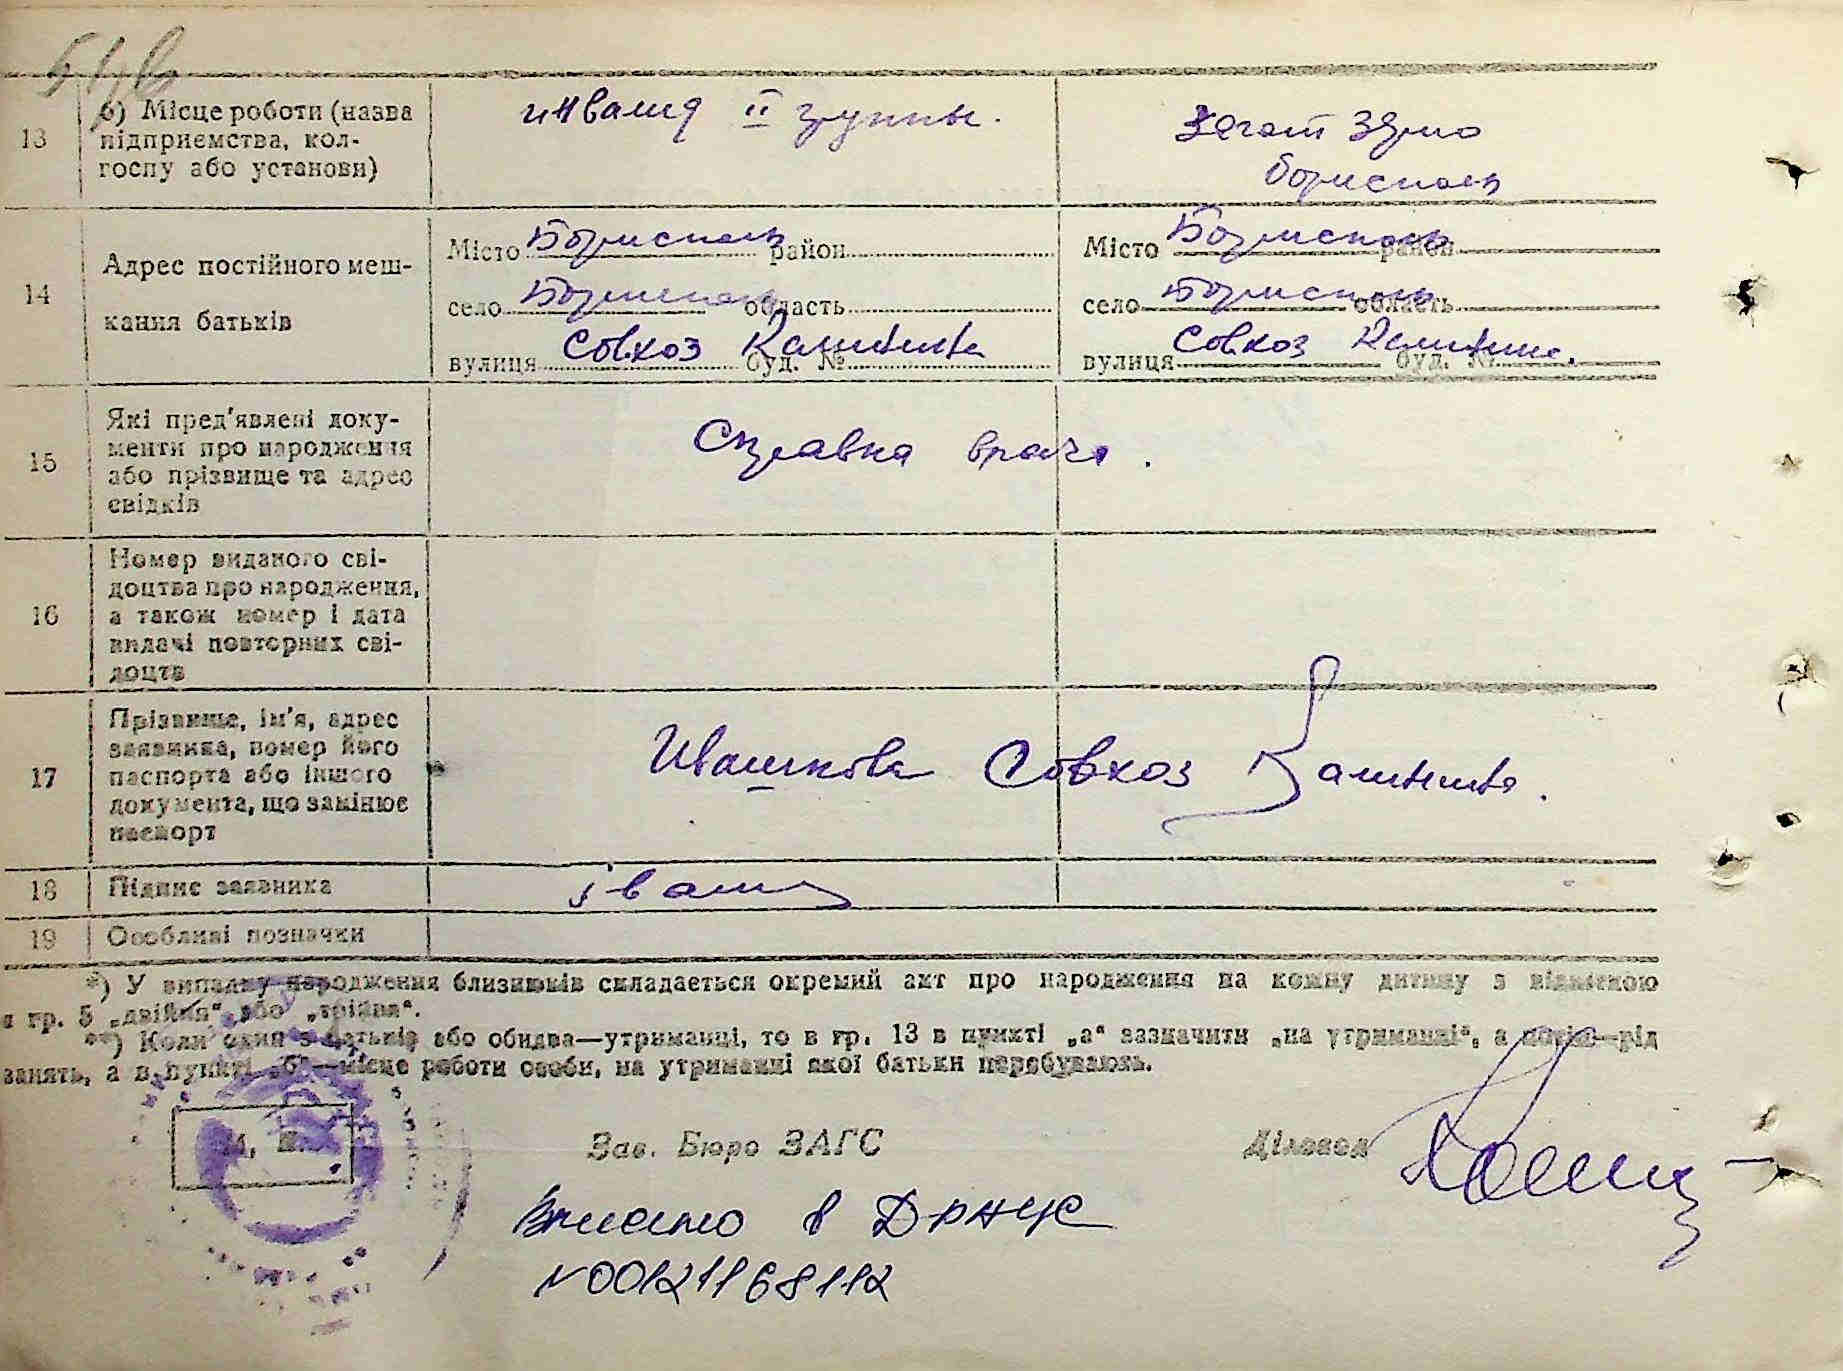 б) Місце роботи (назва
13
підприємства, кол-
госпу або установи)
инвалид II группы.
Зягот Зерно
Борисполь
14
Адрес постійного меш-
кання батьків
Місто Борисполь район
село Борисполь область
вулиця Совхоз Калинина буд. №
Місто Борисполь район
село Борисполь область
вулиця Совхоз Калинина. буд. №
15
Які пред'явлені доку-
менти про народження
або прізвище та адрес
свідків
Справка врача.
16
Номер виданого сві-
доцтва про народження,
а також номер і дата
видачі повторних сві-
доцтв
17
Прізвище, ім'я, адрес
заявника, номер його
паспорта або іншого
документа, що замінює
паспорт
Ивашкова Совхоз Калинина.
18
Підпис заявника
Іваш
19
Особливі позначки
*) У випадку народження близнюків складається окремий акт про народження на кожну дитину з відміткою
в гр. 5 „двійня“ або „трійня“.
**) Коли один з батьків або обидва—утриманці, то в гр. 13 в пункті „а“ зазначити „на утриманні“, а потім—рід
занять, а в пункті „б“—місце роботи особи, на утриманні якої батьки перебувають.
М. П.
Зав. Бюро ЗАГС
Діловод
Внесено в ДРАЦС
N00121168112